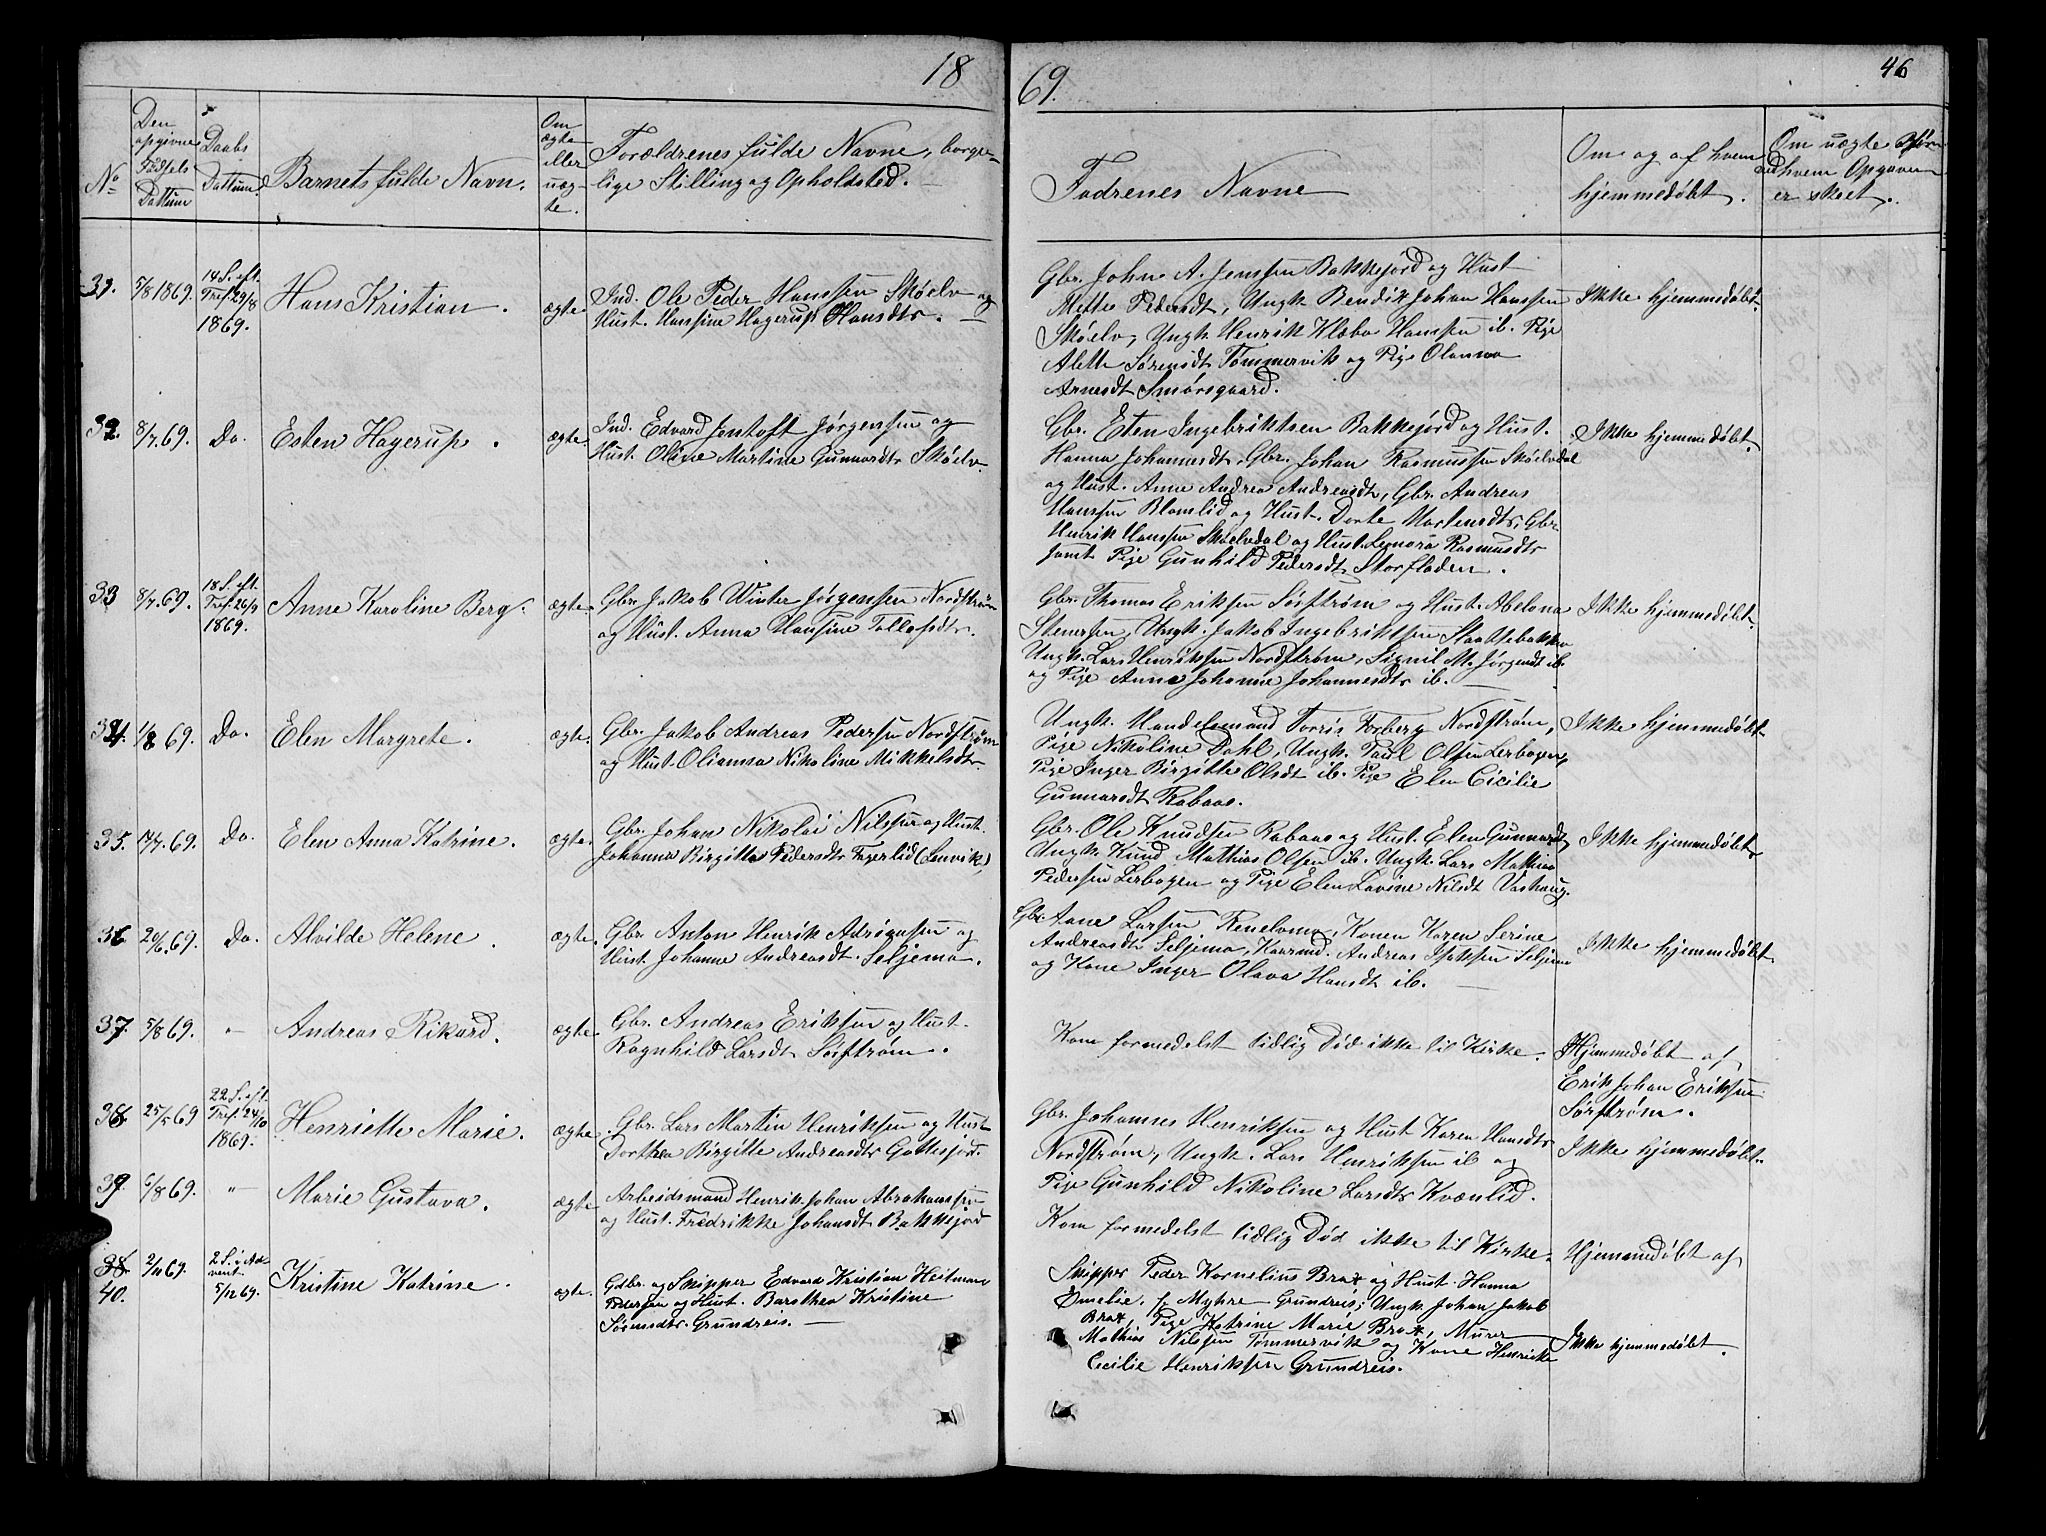 1869.
46
No
Den opgivne Fødsels Dattum
Daabs Dattum.
Barnets fulde Navn.
Om ægte eller uægte.
Forældrenes fulde Navne, borgerlige Stilling og Opholdsted.
Fadrenes Navne
Om og af hvem hjemmedøbt.
Om uægte Børn ved hvem Opgaven er skeet.
31. 5/8 1869. 14 S. eft. Tref. 29/8 1869. Hans Kristian. ægte.
Ind. Ole Peder Hanssen Skøelv og
Hust. Hansine Hagerup Hansdtr. —
Gbr. Johan A. Jenssen Bakkejord og Hust
Mette Pedersdt, Ungk. Bendik Johan Hanssen
Skøelv, Ungk. Henrik Klæbo Hansen ib. Pige
Aleth Sørensdt Tømmervik og Pige Olanna
Arnesdt Smørsgaard.
Ikke hjemmedøbt.
32. 8/7 69. Do. Esten Hagerup. ægte.
Ind. Edvard Jentoft Jørgensen og
Hust. Oline Martine Gunnardtr Skøelv.
Gbr. Eten Ingebriktsen Bakkejord og Hust.
Hanna Johannesdt, Gbr. Johan Rasmussen Skøelvdal
og Hust. Anne Andrea Andreasdt, Gbr. Andreas
Hanssen Blomlid og Hust. Dorte Mortensdtr, Gbr.
Henrik Hansen Skøelvdal og Hust. Lenora Rasmusdtr
samt Pige Gunhild Pedersdt Storfladen.
Ikke hjemmedøbt.
33 8/7 69. 18 S. eft. Tref. 26/9 1869. Anne Karoline Berg. ægte.
Gbr. Jakob Winter Jørgensen Nordstrøm
og Hust. Anna Hansine Tollefsdtr.
Gbr. Thomas Eriksen Sørstrøm og Hust. Abelona
Stensen, Ungk. Jakob Ingebriktsen Slaattebakken
Ungk. Lars Henriksen Nordstrøm, Signil M. Jørgensdt ib.
og Pige Anne Johanne Johannesdtr ib. —
Ikke hjemmedøbt.
34. 1/8 69. Do. Elen Margrete. ægte.
Gbr. Jakob Andreas Pedersen Nordstrøm
og Hust. Olianna Nikoline Mikkelsdtr.
Ungk. Handelsmand Torris Forberg Nordstrøm,
Pige Nikoline Dahl, Ungk. Paul Olsen Lerbogen,
Pige Inger Birgitte Olsdt ib. Pige Elen Cicilie
Gunnarsdt Rabaas.
Ikke hjemmedøbt.
35. 14/7 69. Do. Elen Anna Katrine. ægte.
Gbr. Johan Nikolai Nilssen og Hust.
Johanna Birgitta Pedersdtr Fagerlid (Lenvik)
Gbr. Ole Knudsen Rabaas og Hust. Elen Gunnardt,
Ungk. Knud Mathias Olsen ib. Ungk. Lars Mathias
Pedersen Lerbogen og Pige Elen Lovine Nilsdt Vashaug.
Ikke hjemmedøbt.
36 20/6 69. Do. Alvilde Helene. ægte.
Gbr. Anton Henrik Adriansen og
Hust Johanne Andreasdt. Seljema.
Gbr. Aane Larsen Renelvmo, Konen Karen Serine
Andreasdt Seljema, Kaarmd. Andreas Isaksen Seljema
og Kone Inger Olava Hansdt ib. —
Ikke hjemmedøbt.
37. 5/8 69. " Andreas Rikard. ægte.
Gbr. Andreas Eriksen og Hust.
Ragnhild Larsdt Sørstrøm.
Kom formedelst tidlig Død ikke til Kirke.
Hjemmedøbt af
Erik Johan Eriksen
Sørstrøm.
38. 25/5 69 22 S. eft. Tref. 24/10 1869. Henriette Marie. ægte
Gbr. Lars Martin Henriksen og Hust
Dorthea Birgitte Andreasdtr Gottesjord.
Gbr. Johannes Henriksen og Hust Karen Hansdtr
Nordstrøm, Ungk. Lars Henriksen ib og
Pige Gunhild Nikoline Larsdtr Kvænlid.
Ikke hjemmedøbt.
39. 6/8 69. " Marie Gustava. ægte
Arbeidsmand Henrik Johan Abrahamssen
og Hust. Fredrikke Johansdt Bakkejord
Kom formedelst tidlig Død ikke til Kirke.
Hjemmedøbt af
38. 40. 2/11 69. 2 S. i Advent. 5/12 69. Kristine Katrine. ægte.
Gdbr. og Skipper Edvard Kristian Heitmann
Pedersen og Hust. Barothea Kristine
Sørensdtr. Grundreis. —
Skipper Peder Kornelius Brox og Hust. Hanna
Emelie f. Myhre Grundreis; Ungk. Johan Jakob
Brox, Pige Katrine Marie Brox, Murer
Mathias Nilssen Tømmervik og Kone Henrikke
Cecilie Henriksen Grundreis.
Ikke hjemmedøbt.